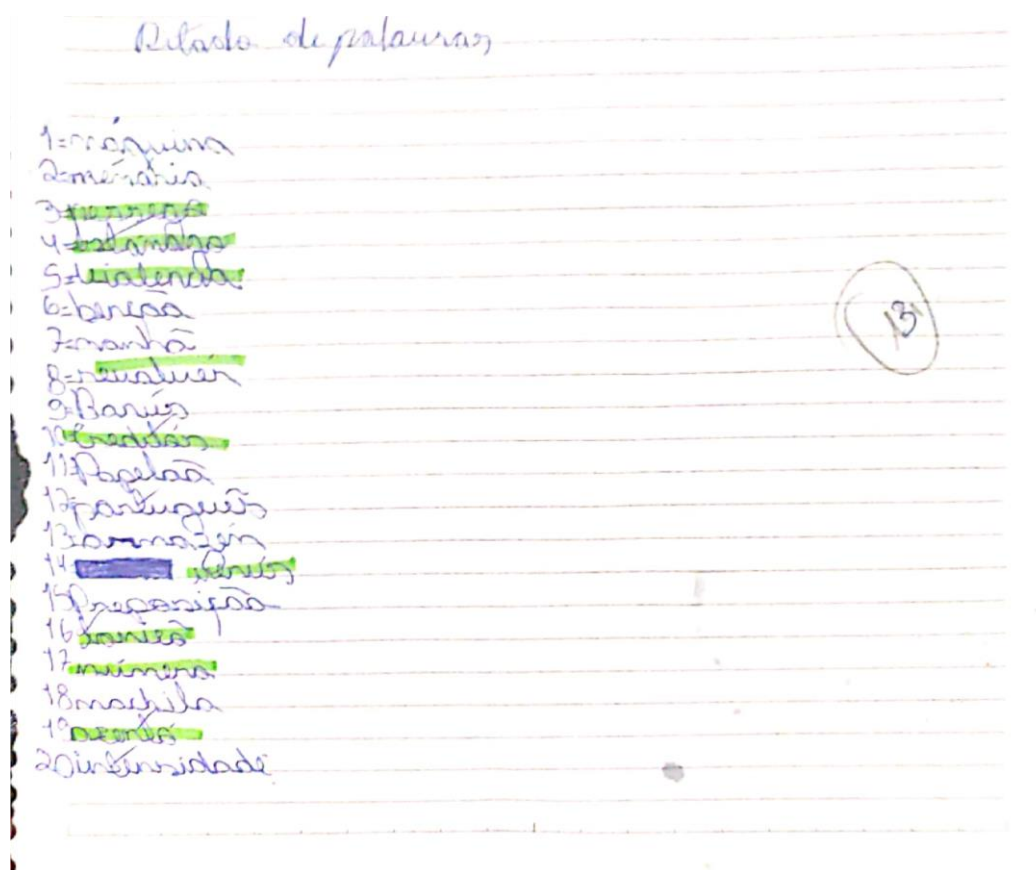 Ditado de palavras
1=máquina
2=memória
3=
4=estomago
5=violencia
6=benção
7=manhã
8=revolver
9=Barus
10
11=Papelão
12=português
13 armazén
14
15 Preposição
16
17 número
18 mochila
19
20 intensidade
13